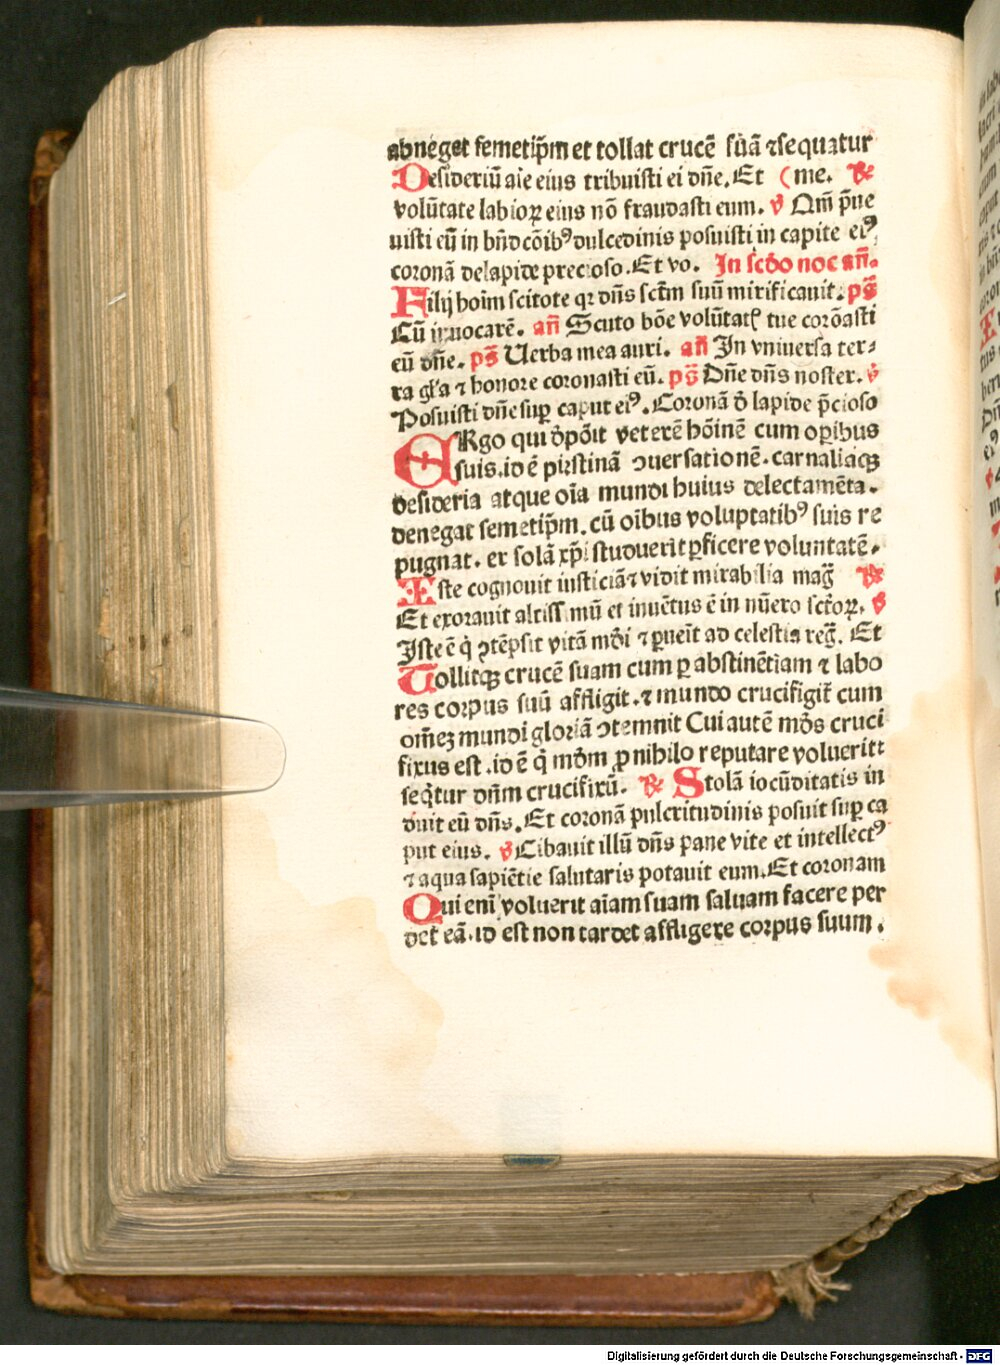 abneget semetip̄m et tollat crucē suā ⁊sequatur
Desideriū aīe eius tribuisti ei dn̄e. Et (me. ℟
volūtate labioꝝ eius nō fraudasti eum. ℣ Qm̄ p̄ue
uisti eū in bn̄dcōibꝰ dulcedinis posuisti in capite eiꝰ,
coronā de lapide precioso. Et vo. In scd̄o noc an̄.
Filij hoīm scitote qꝛ dn̄s sctm̄ suū mirificauit. ps̄
Cū inuocarē. an̄ Scuto bōe volūtatꝭ tue corōasti
eū dn̄e. ps̄ Uerba mea auri. an̄ In vniuersa ter⸗
ra gl'a ⁊ honore coronasti eū. ps̄ Dn̄e dn̄s noster. ℣
Posuisti dn̄e suꝑ caput eiꝰ. Coronā d̄ lapide p̄cioso
ERgo qui d̄pōit veterē hōinē cum oꝑibus
suis. id ē pristinā ꝯuersationē. carnaliaqꝫ
desideria atque oīa mundi huius delectamēta.
denegat semetip̄m. cū oībus voluptatibꝰ suis re
pugnat. et solā xp̄i studuerit ꝑficere voluntatē.
Iste cognouit iusticiā ⁊ vidit mirabilia maḡ ℟
Et exorauit altissimū et inuētus ē in nūero sctōꝝ. ℣
Iste ē q̇ ꝯtēpsit vitā mūdi ⁊ ꝑueīt ad celestia reḡ. Et
Tollitqꝫ crucē suam cum ꝑ abstinētiam ⁊ labo
res corpus suū affligit. ⁊ mundo crucifigit̄ cum
om̄eꝫ mundi gloriā ꝯtemnit Cui autē mōs cruci
fixus est. id ē q̇ mōm ꝓ nihilo reputare voluerit ⁊
seq̄tur dn̄m crucifixū. ℟ Stolā iocūditatis in
duit eū dn̄s. Et coronā pulcritudinis posuit suꝑ ca
put eius. ℣ Cibauit illū dn̄s pane vite et intellectꝰ
⁊ aqua sapiētie salutaris potauit eum. Et coronam
Qui eni voluerit aīam suam saluam facere per
det eā. id est non tardet affligere corpus suum.
Digitalisierung gefördert durch die Deutsche Forschungsgemeinschaft - DFG